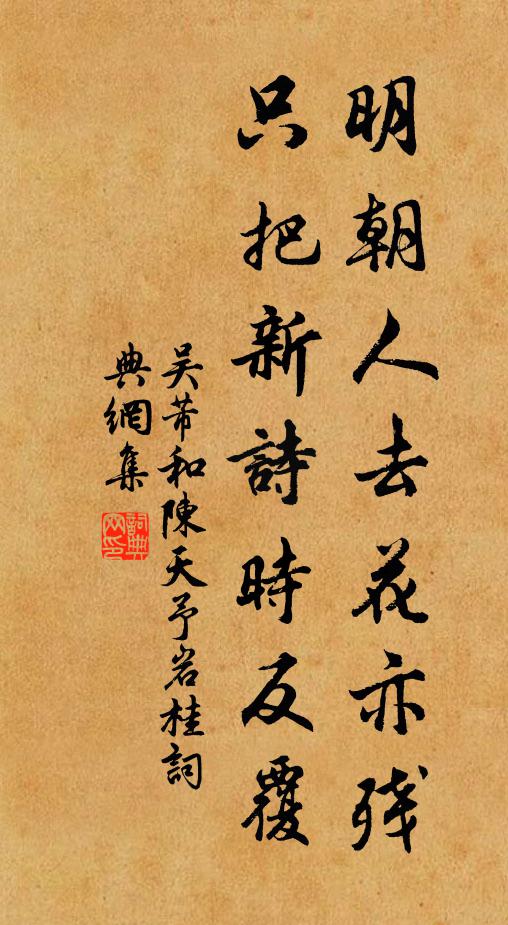 明朝人去花亦残
只把新詩時反覆
吴芾和陳天予岩桂詞
典網集
詞典網印